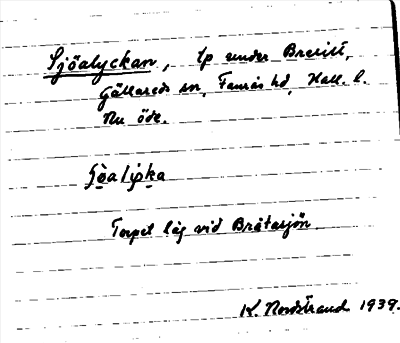 Sjöalyckan, lp under Brevitt,
Gällareds sn, Faurås hd, Hall. l.
Nu öde.
Torpet låg vid Bråtasjön.
K. Nordstrand 1939.